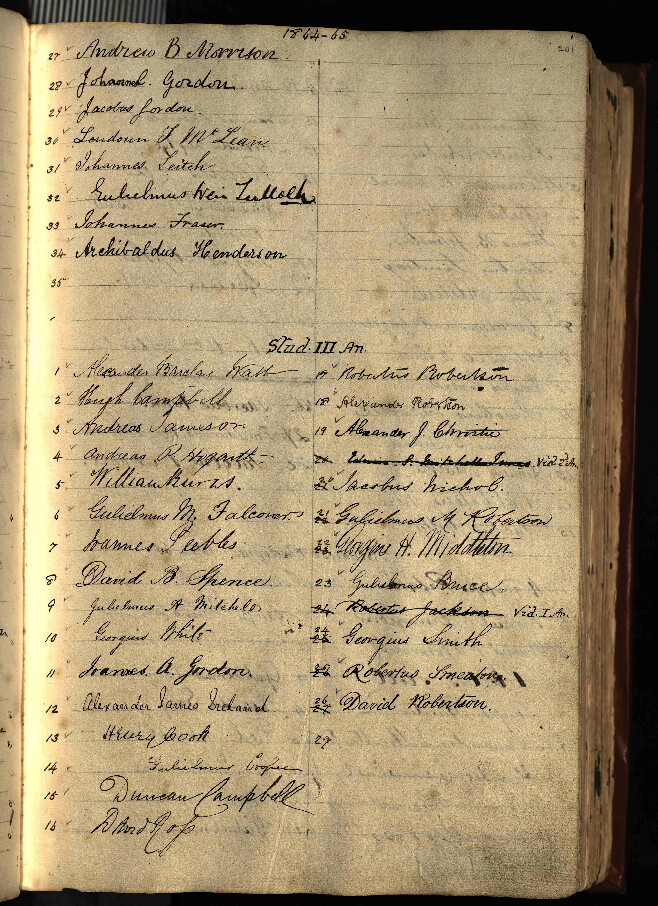 1864-65
201
27 Andrew B Morrison
28 Johannes Gordon
29 Jacobus Gordon
30 Loudoun F McLean
31 Johannes Leitch
32 Gulielmus Tulloch
33 Johannes Fraser
34 Archibaldus Henderson
35
Stud. III An.
1 Alexander Barclay Watt
2 Hugh Campbell
3 Andreas Jameson
4 Andreas R. Hogarth
5 William Burns.
6 Gulielmus M. Falconer
7 Joannes Peebles
8 David B. Spence
9 Gulielmus A Mitchel
10 Georgius White
11 Joannes A. Gordon.
12 Alexander James Ireland
13 Henry Cook
14 Gulielmus Cooper
15 Duncan Campbell
16 David Ross
17 Robertus Robertson
18 Alexander Robertson
19 Alexander J. Christie
20 Mitchell Innes. Vid. 2d An.
Jacobus Nichol.
21 Gulielmus M Robertson
22 Georgius H. Middleton
23 Gulielmus Bruce
24 Robertus Jackson Vid. I. An.
24 Georgius Smith
25 Robertus Smeaton
26 David Robertson.
29